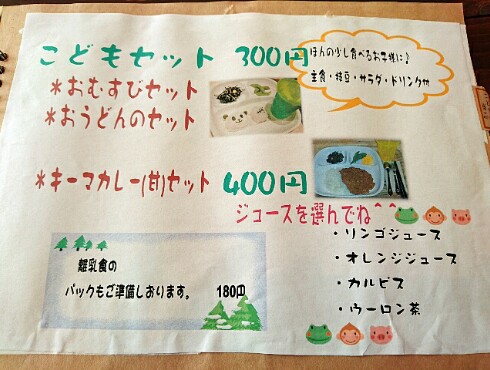 こどもセット 300円
ほんの少し食べるお子様に♪
主食・枝豆・サラダ・ドリンク付
*おむすびセット
*おうどんのセット
*キーマカレー(甘)セット 400円
ジュースを選んでね^^
・リンゴジュース
・オレンジジュース
・カルピス
・ウーロン茶
離乳食の
パックもご準備しおります。 180円